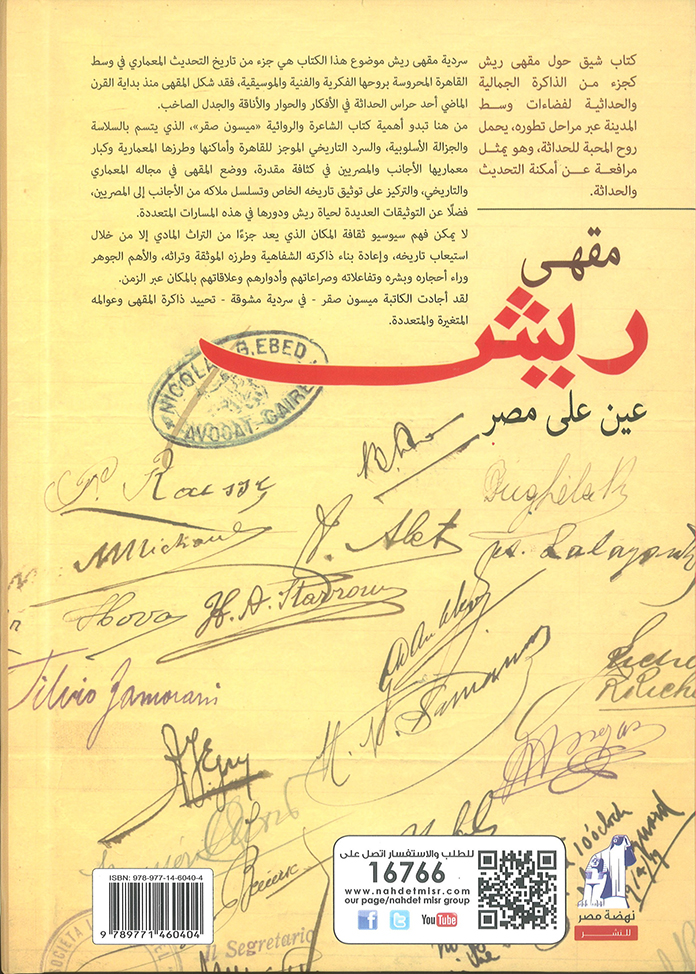 كتاب شيق حول مقهى ريش
كجزء من الذاكرة الجمالية
والحداثية لفضاءات وسط
المدينة عبر مراحل تطوره، يحمل
روح المحبة للحداثة، وهو يمثل
مرافعة عن أمكنة التحديث
والحداثة.
سردية مقهى ريش موضوع هذا الكتاب هي جزء من تاريخ التحديث المعماري في وسط
القاهرة المحروسة بروحها الفكرية والفنية والموسيقية، فقد شكل المقهى منذ بداية القرن
الماضي أحد حراس الحداثة في الأفكار والحوار والأناقة والجدل الصاخب.
من هنا تبدو أهمية كتاب الشاعرة والروائية «ميسون صقر»، الذي يتسم بالسلاسة
والجزالة الأسلوبية، والسرد التاريخي الموجز للقاهرة وأماكنها وطرزها المعمارية وكبار
معماريها الأجانب والمصريين في كثافة مقدرة، ووضع المقهى في مجاله المعماري
والتاريخي، والتركيز على توثيق تاريخه الخاص وتسلسل ملاكه من الأجانب إلى المصريين،
فضلًا عن التوثيقات العديدة لحياة ريش ودورها في هذه المسارات المتعددة.
لا يمكن فهم سيوسيو ثقافة المكان الذي يعد جزءًا من التراث المادي إلا من خلال
استيعاب تاريخه، وإعادة بناء ذاكرته الشفاهية وطرزه الموثقة وتراثه، والأهم الجوهر
وراء أحجاره وبشره وتفاعلاته وصراعاتهم وأدوارهم وعلاقاتهم بالمكان عبر الزمن.
لقد أجادت الكاتبة ميسون صقر - في سردية مشوقة - تحييد ذاكرة المقهى وعوالمه
المتغيرة والمتعددة.
مقهى
ريش
عين على مصر
NICOLA G. EBED
AVOCAT-CAIRE
J. Alet
H. A. Stavrou
Silvio Zamorani
10 o'clock
Il Segretario
للطلب والاستفسار اتصل على
16766
www.nahdetmisr.com
our page/nahdet misr group
You Tube
نهضة مصر
للنشر
ISBN: 978-977-14-6040-4
9 789771 460404